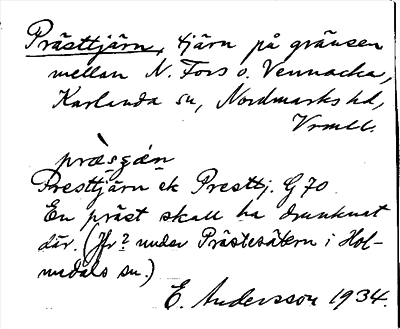 Prästtjärn, tjärn på gränsen
mellan N. Fors o. Vennacka,
Karlanda sn, Nordmarks hd,
Vrml.
præ̀sgæn
Presttjärn ek Presttj. G 70
En präst skall ha drunknat
där. (Jfr ? under Prästesätern i Hol-
medals sn.)
E. Andersson 1934.